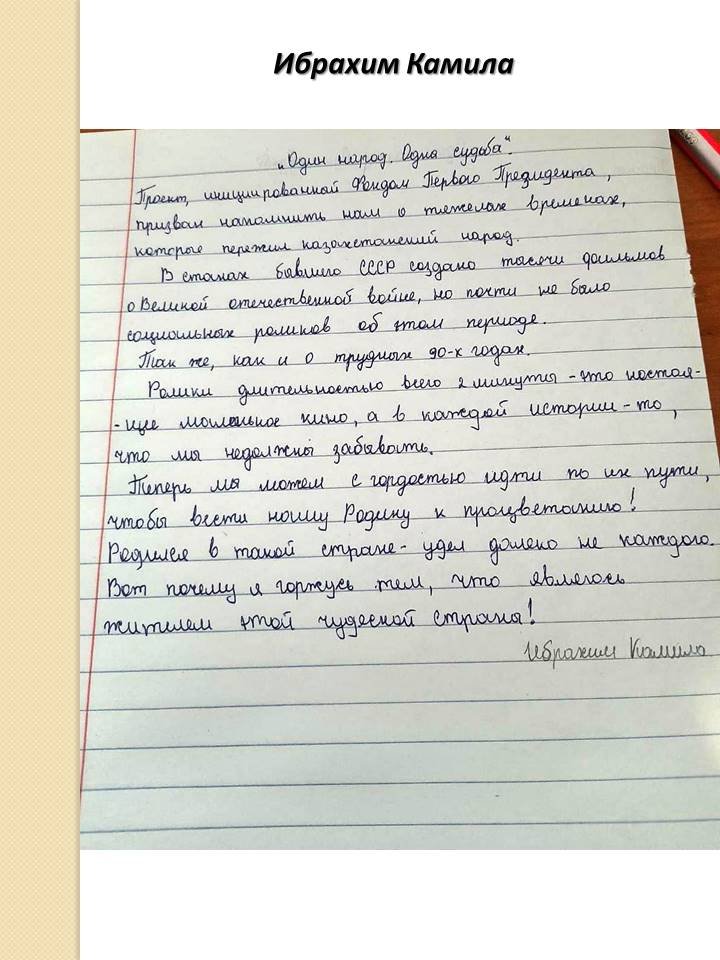 Ибрахим Камила
„Один народ. Одна судьба".
Проект, инициированный Фондом Первого Президента,
призван напомнить нам о тяжелых временах,
которые пережил казахстанский народ.
В станах бывшего СССР создано тысячи фильмов
о Великой отечественной войне, но почти не было
социальных роликов об этом периоде.
Так же, как и о трудных 90-х годах.
Ролики длительностью всего 2 минуты - это настоя-
-щее маленькое кино, а в каждой истории - то,
что мы недолжны забывать.
Теперь мы можем с гордостью идти по их пути,
чтобы вести нашу Родину к процветанию!
Родился в такой стране - удел далеко не каждого.
Вот почему я горжусь тем, что являюсь
жителем этой чудесной страны!
Ибрахим Камила